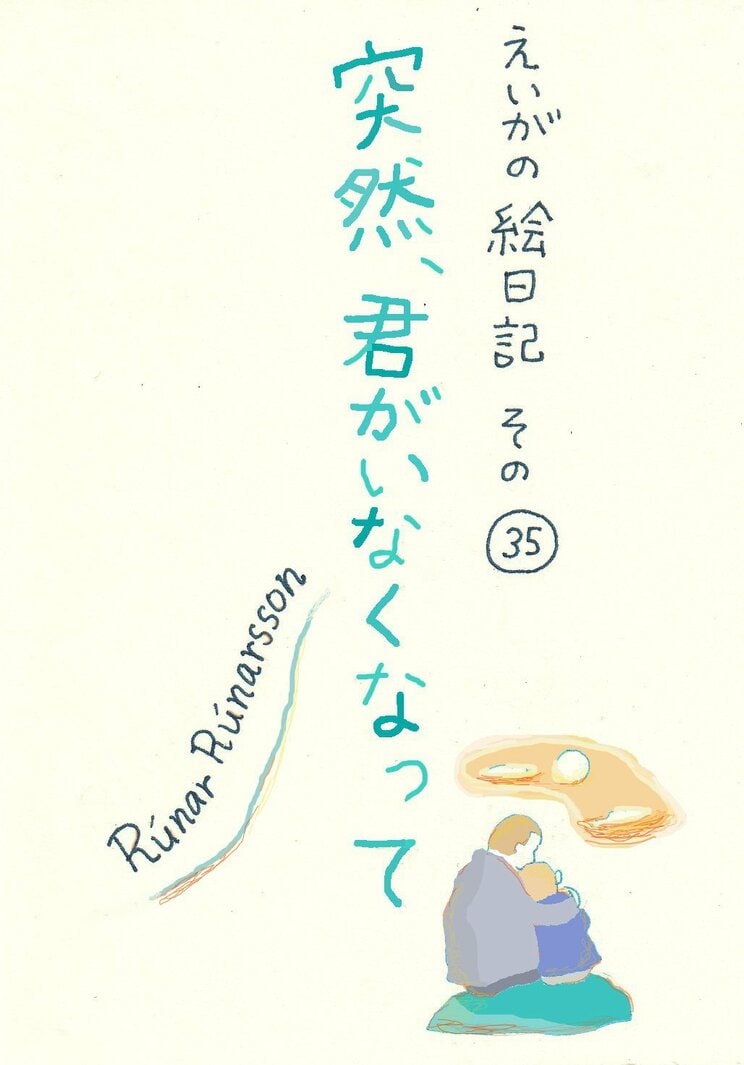 えいがの絵日記 その㉟
突然、君がいなくなって
Rúnar Rúnarsson